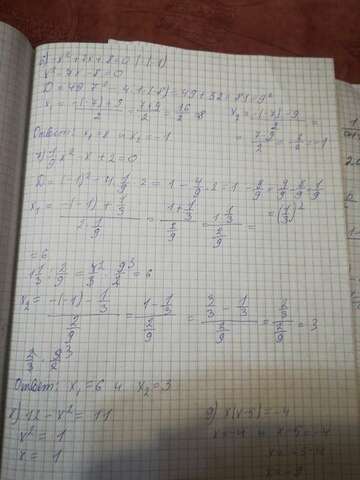 6) -x²+7x+8=0 |·(-1)
x²-7x-8=0
D=49-7²-4·1·(-8)=49+32=81=9²
x₁=(-(-7)+9)/2=(7+9)/2=16/2=8 x₂=(-(-7)-9)/2=
=(7-9)/2=-2/2=-1
Ответ: x₁=8 и x₂=-1
7) 1/9x²-x+2=0
D=(-1)²-4·1/9·2=1-4/9·2=1-8/9=9/9-8/9=1/9
=(1/3)²
x₁=(-(-1)+1/3)/(2·1/9)=(1+1/3)/(2/9)=(1 1/3)/(2/9)=
=6
1 1/3:2/9=4²/3·9³/2=6
x₂=(-(-1)-1/3)/(2/9)=(1-1/3)/(2/9)=(3/3-1/3)/(2/9)=(2/3)/(2/9)=3
Ответ: x₁=6 и x₂=3
8) 12-x²=11
x²=1
x=1
9) x(x-5)=-4
x=-4 и x-5=-4